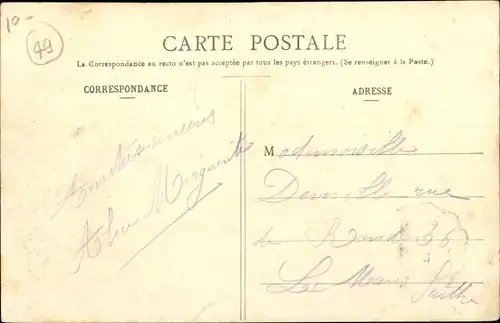 10-
49
CARTE POSTALE
La Correspondance au recto n'est pas acceptée par tous les pays étrangers. (Se renseigner à la Poste.)
CORRESPONDANCE
ADRESSE
Amitiés sincères
Marguerite
Mademoiselle
rue
36
Le Mans
Sarthe